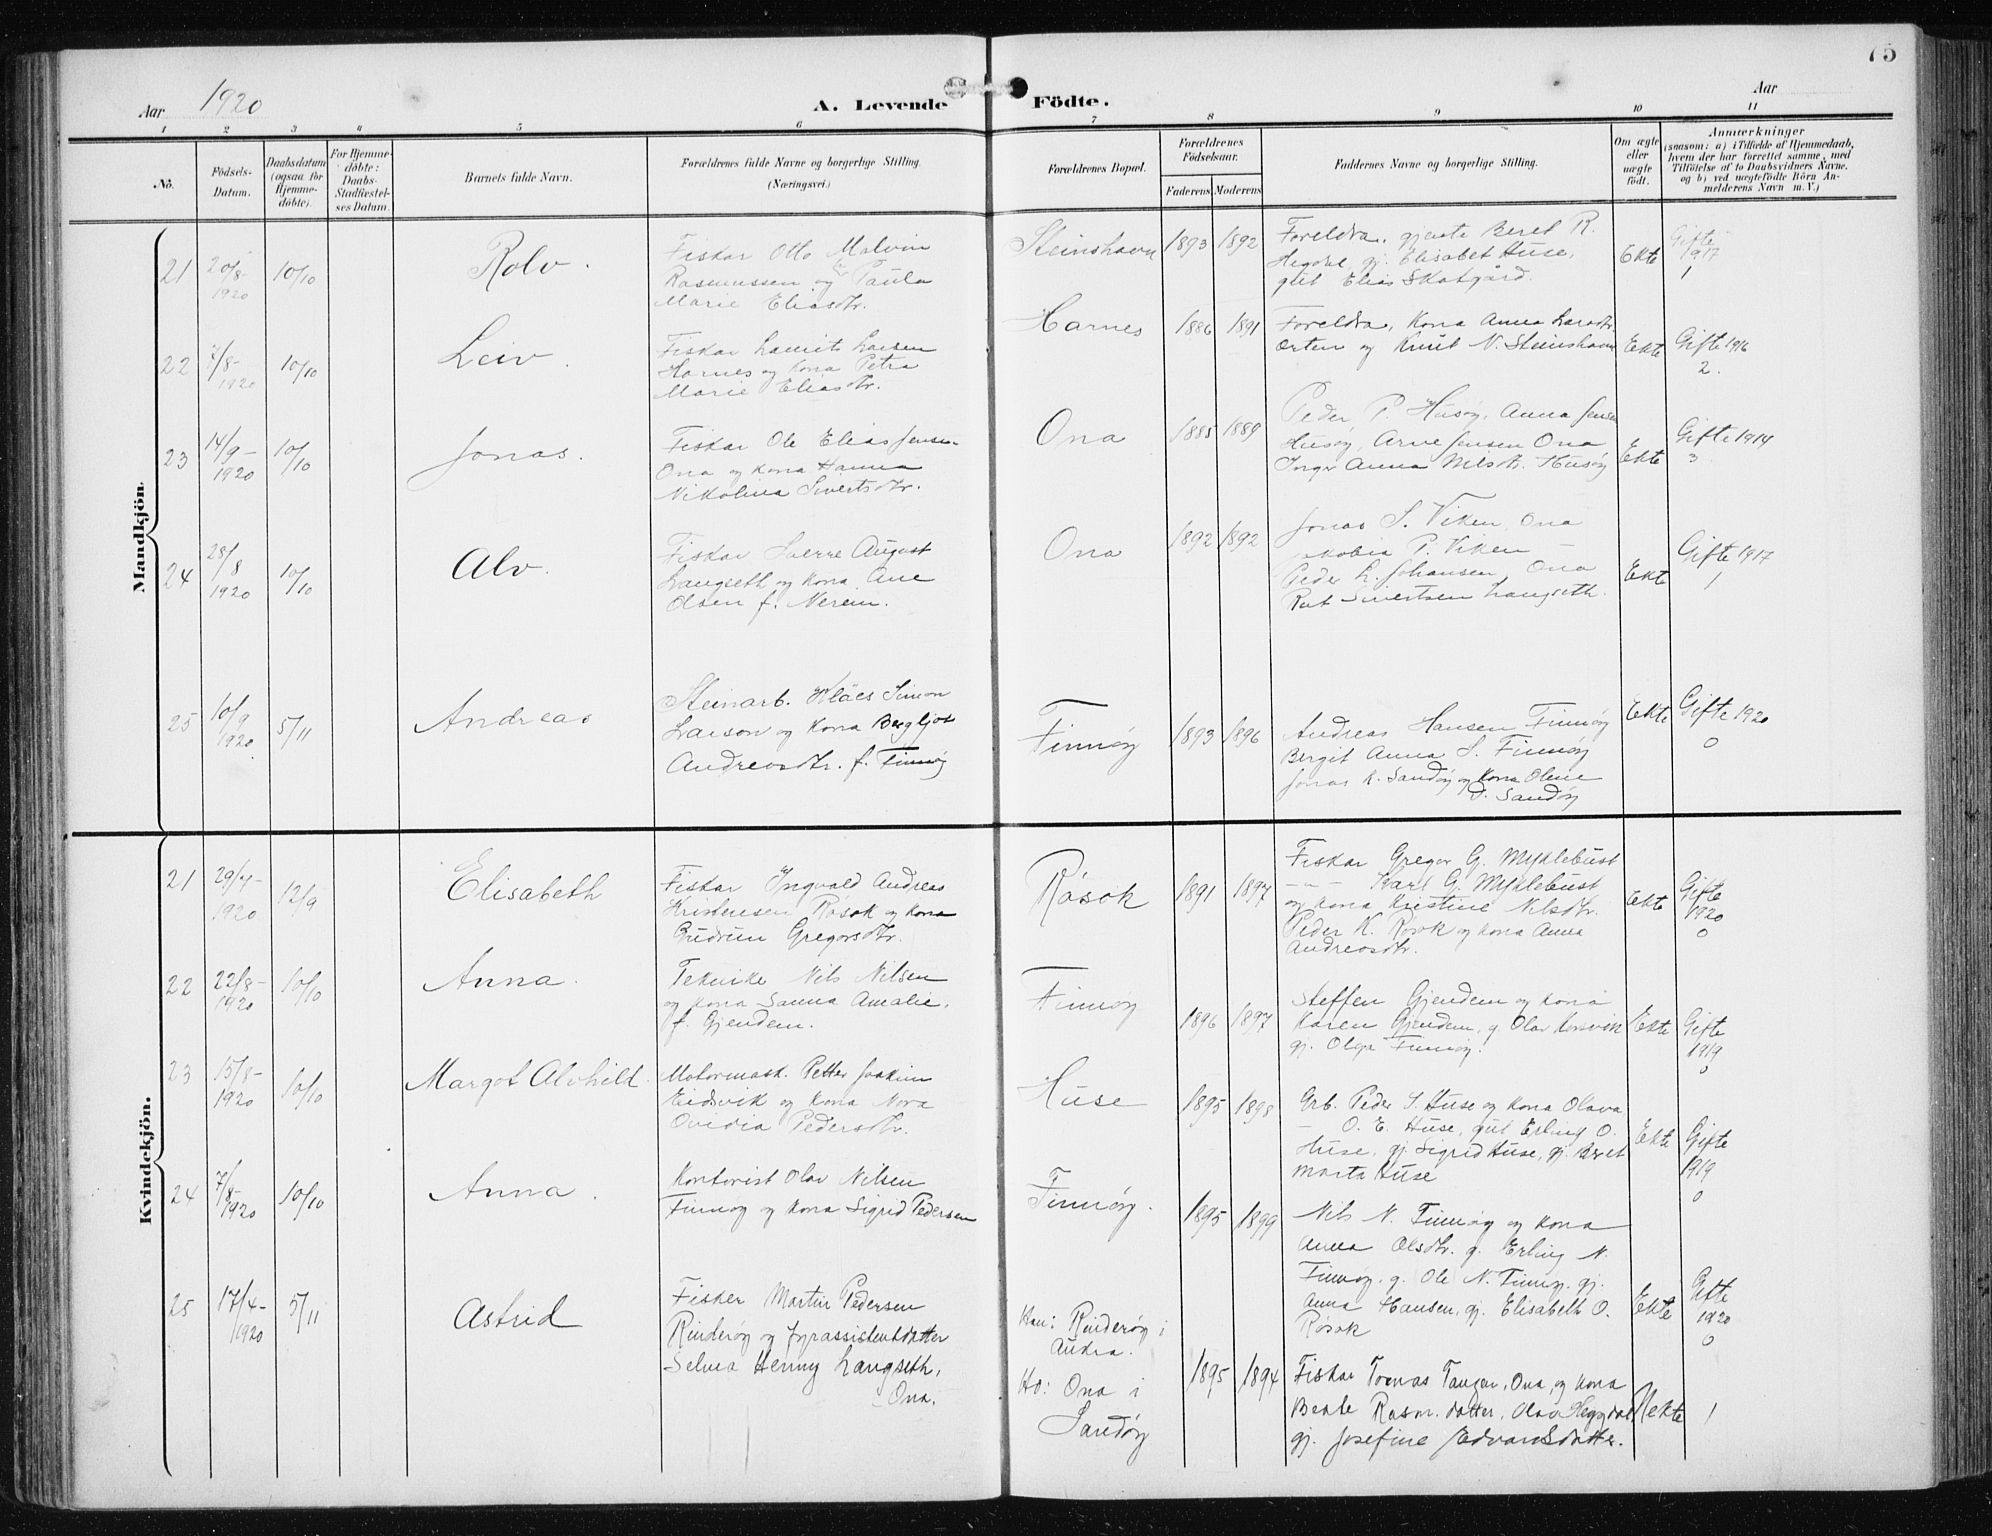 75
Aar 1920
A. Levende Födte.
Aar
1 2 3 4 5 6 7 8 9 10 11
No.
Födsels-Datum.
Daabsdatum (ogsaa for Hjemme-döbte).
For Hjemme-döbte: Daabs-Stadfæstel-ses Datum.
Barnets fulde Navn.
Forældrenes fulde Navne og borgerlige Stilling.
(Næringsvei.)
Forældrenes Bopæl.
Forældrenes Födselsaar.
Faderens Moderens
Faddernes Navne og borgerlige Stilling.
Om ægte eller uægte födt.
Anmærkninger
(saasom: a) i Tilfælde af Hjemmedaab,
hvem der har forrettet samme, med
Tilföielse af to Daabsvidners Navne.
og b) ved uægtefödte Börn An-
melderens Navn m. V.)
Mandkjön.
21 20/8 1920 10/10 Rolv.
Fiskar Otto Malvin
Rasmussen og Paula
Marie Eliasdtr.
Steinshavn 1893 1892
Foreldra, gjente Beret R.
Hegdal, gj. Elisabet Huse,
gut Elias Skotgård.
Ekte
Gifte 1917
1
22 7/8-1920 10/10 Leiv.
Fiskar Laurits Larsen
Harnes og kona Petra
Marie Eliasdtr.
Harnes 1886 1891
Foreldra, Kona Anna Larsdtr.
Orten og Knut N. Steinshavn
Ekte
Gifte 1916
2.
23 14/9-1920 10/10 Jonas.
Fiskar Ole Elias Jensen
Ona og kona Hanna
Nikolina Sivertsdtr.
Ona 1885 1889
Peder P. Husøy, Anna Jensen
Husøy, Arne Jensen Ona
Inger Anna Nilsdtr. Husøy
Ekte
Gifte 1914
3
24 28/8 1920 10/10 Alv.
Fiskar Sverre August
Langseth og kona Ane
Olsen f. Nerem.
Ona 1892 1892
Jonas S. Viken, Ona
Jakobia P. Viken —
Peder L. Johansen, Ona
Rut Sivertsen Langseth.
Ekte
Gifte 1917
1
25 10/9 1920 5/11 Andreas
Steinarb. Klaes Simon
Larson og kona Bergljot
Andreasdtr. f. Finnøy
Finnøy 1893 1896
Andreas Hansen Finnøy
Bergit Anna S. Finnøy
Jonas K. Sandøy og kona Oline
Sandøy
Ekte
Gifte 1920
0
Kvindekjön.
21 29/7-1920 12/9 Elisabeth
Fiskar Ingvald Andreas
Kristensen Røsok og kona
Gudrun Gregorsdtr.
Røsok 1891 1897
Fiskar Gregor G. Myklebust
— " — Karl G. Myklebust
og kona Kristine Nilsdtr.
Peder K. Røsok og kona Anna
Andreasdtr.
Ekte
Gifte 1920
0
22 22/8-1920 10/10 Anna.
Teknike Nils Nilsen
og kona Sanna Amalie,
f. Gjendem.
Finnøy 1896 1897
Steffen Gjendem og kona
Karen Gjendem, g. Olav Korsvik
gj. Olga Finnøy.
Ekte
Gifte 1919
0
23 15/8-1920 10/10 Margot Alvhild.
Motormask. Petter Joakim
Eidsvik og kona Nora
Ovidia Pedersdtr.
Huse 1895 1898
Grb. Peder S. Huse og kona Olava
— O. E. Huse, gut Erling O.
Huse, gj. Sigrid Huse, gj. Beret
Marta Huse
Ekte
Gifte 1919
0
24 7/8-1920 10/10 Anna.
Kontorist Olav Nilsen
Finnøy og kona Sigrid Pedersen
Finnøy. 1895 1899
Nils N. Finnøy og kona
Anna Olsdtr. g. Erling N.
Finnøy, g. Ole N. Finnøy, gj.
Anna Hansen, gj. Elisabeth O.
Røsok
Ekte
Gifte 1920
0
25 17/4-1920 5/11 Astrid
Fisker Martin Pedersen
Rinderøy og fyrassistentdatter
Selma Henny Langseth,
Ona.
Han: Rinderøy i
Aukra.
Ho: Ona i
Sandøy
1895 1894
Fiskar Tomas Tangen, Ona, og kona
Beate Rasm. datter, Olav Hegdal
gj. Josefine Edvardsdatter.
Uekte
1